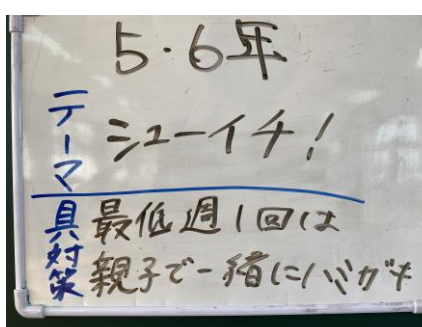 5・6年
テーマ シューイチ!
具対策 最低週1回は
親子で一緒にハミガキ